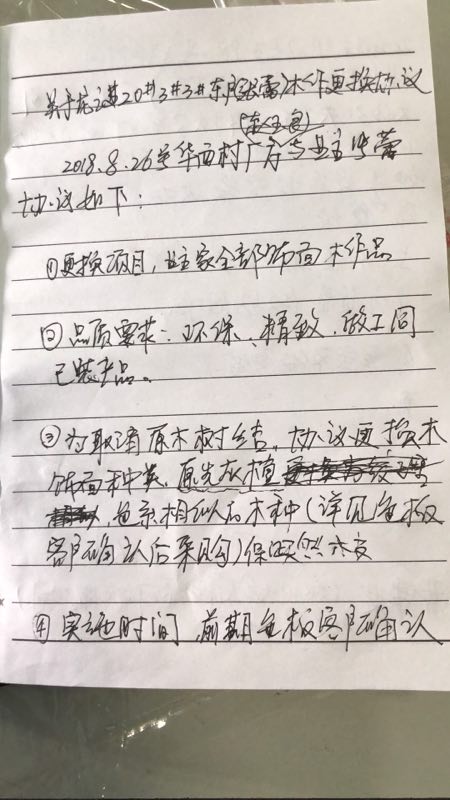 关于20#3#3#东户张蕾木作更换协议
2018.8.26号华西村厂方与业主张蕾
协议如下：
①更换项目，业主家全部饰面木作品
②品质要求：环保、精致、做工同
已装产品。
③为取消原木树结，协议更换木
饰面种类，原先灰
色系相似的木种（详见色板
客户确认后采购）
④实施时间，前期色板客户确认